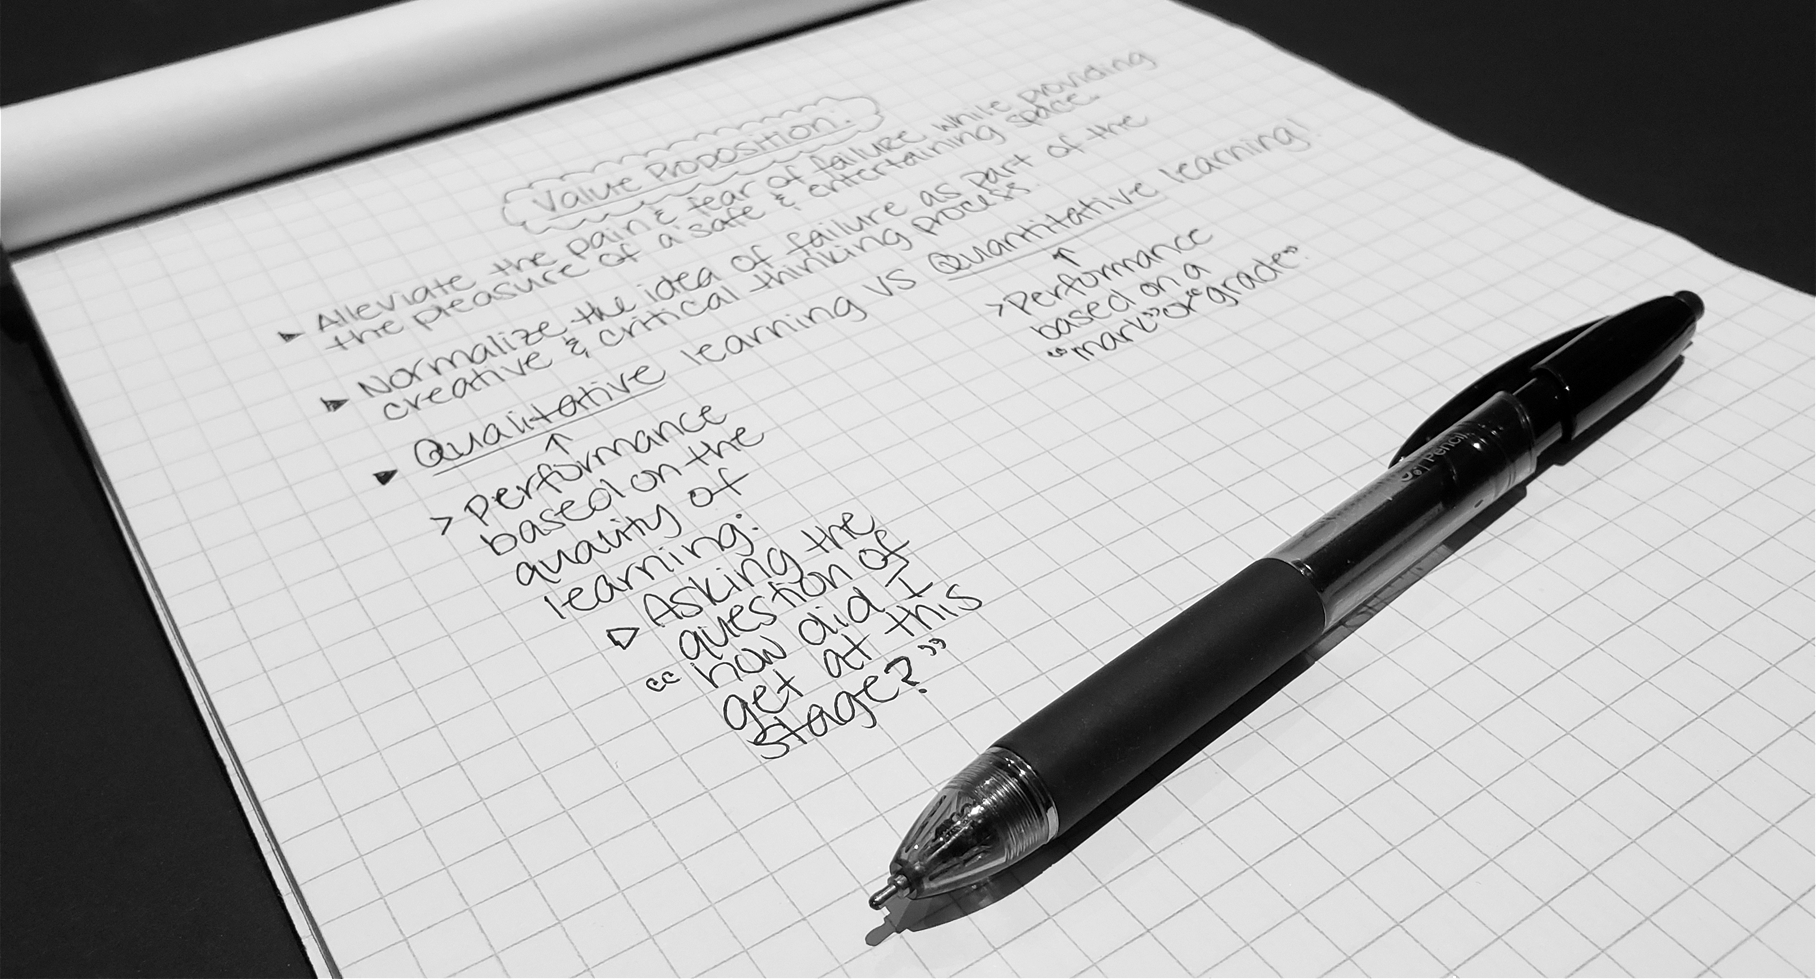 Value Proposition:
▸ Alleviate the pain & fear of failure while providing
the pleasure of a safe & entertaining space.
▸ Normalize the idea of failure as part of the
creative & critical thinking process.
▸ Qualitative learning vs Quantitative learning!
↑
> Performance
based on the
quality of
learning:
▷ Asking the
question of
“how did I
get at this
stage?”
↑
> Performance
based on a
“mark” or “grade”.
Pencil